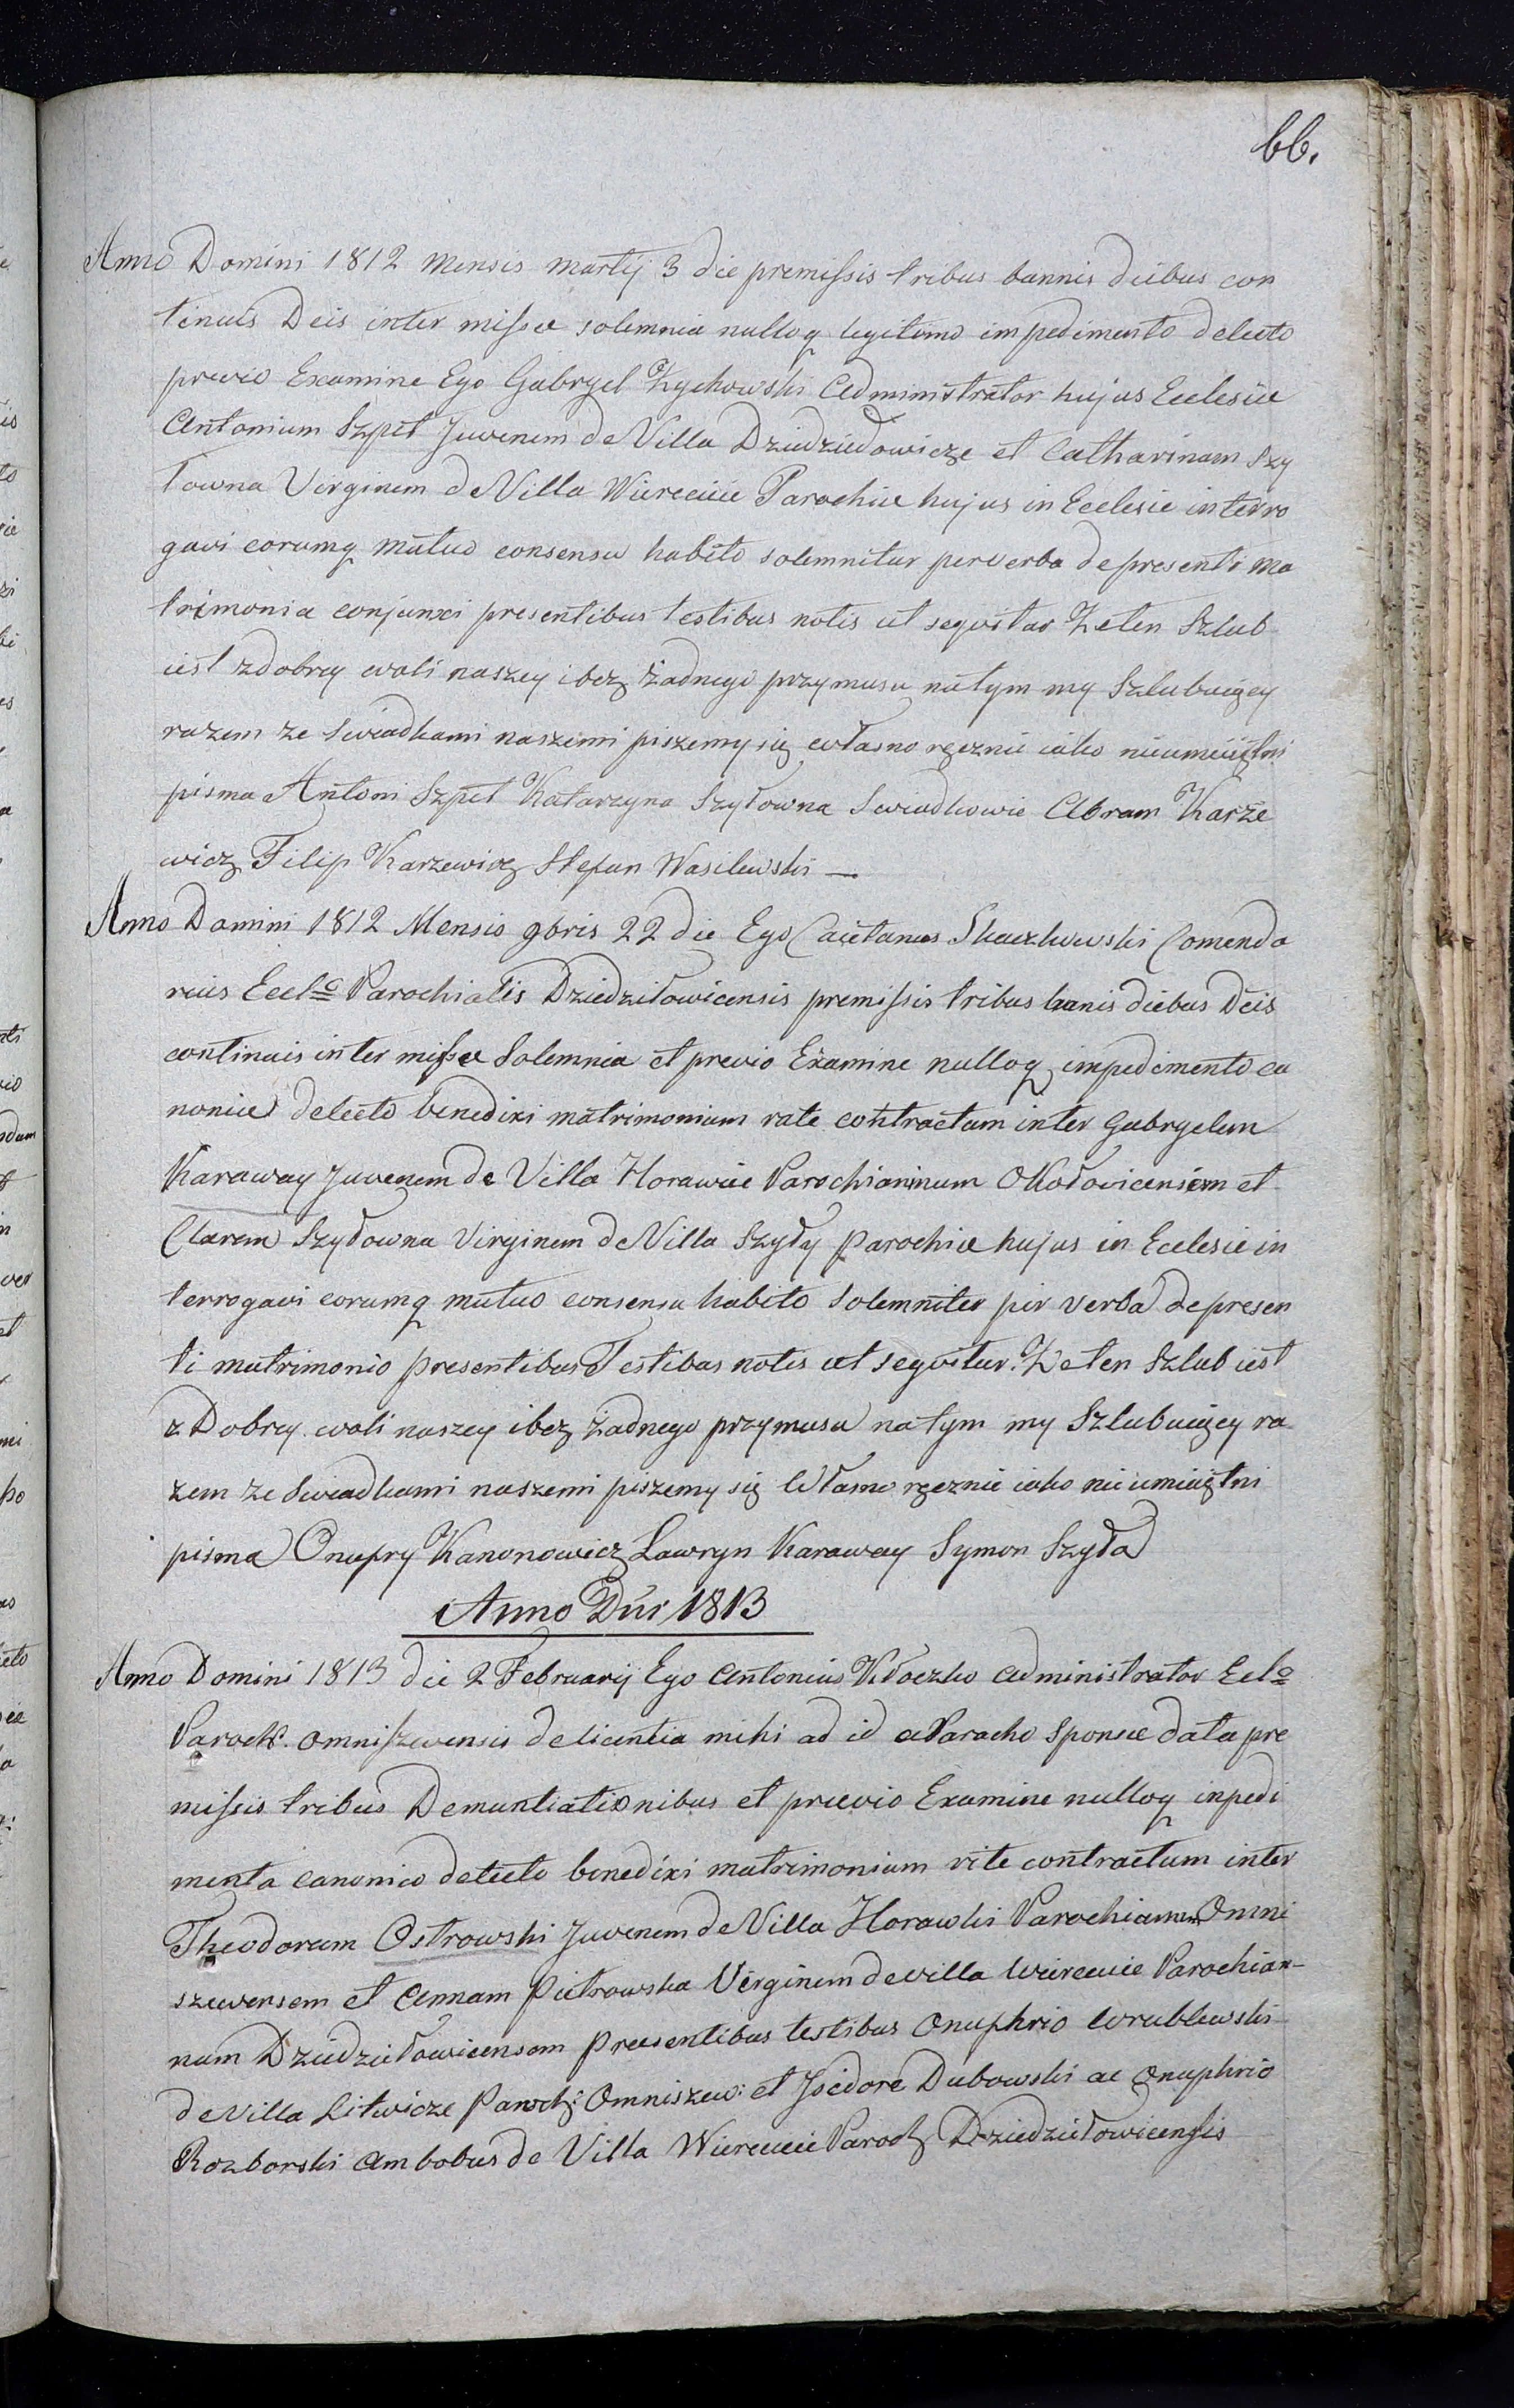 66.
Anno Domini 1812 Mensis martij 3 die premissis tribus bannis diebus con
tinuis Deis inter missa solemnia nulloq legitimo impedimento delecto
previo Examine Ego Gabryel Kychowski Administrator hujus Eclesiae
Antonium Szpet Juvenem de Villa Dziedziedowicze et Catharinam Szy
łowna Virginem de Villa Wiereiiie Parochiae hujus in Eclesie interro
gavi eorumq mutuo consensu habito solemnitur per verba de presenti ma
trimonia conjunxi presentibus testibus notis ut seqvitur Ze ten Szlub
iest z dobrey woli naszey i bez żadnego przymusu natym my Szlubuiący
razem ze Swiadkami naszemi piszemy się własno ręcznie iako nieumieiętni
pisma Antoni Szpet Katarzyna Szyłowna Swiadkowie Abram Karże
wicz Filip Karzewicz Stefan Wasilewski —
Anno Domini 1812 Mensis 9bris 22 die Ego Caietanus Skaczkowski Comenda
rius Eccl Parochialis Dziedziłowicensis premissis tribus banis diebus Deis
continuis inter missa Solemnia et previo Examine nulloq impedimento ca
nonico delecto benedixi matrimonium rate contractum inter Gabryelem
Karaway Juvenem de Villa Horawiie Parochianinum Okołowicensem et
Claram Szyłowna Virginem de Villa Szyły parochiae hujus in Eclesie in
terrogavi eorumq mutuo consensu habito Solemniter per verba de presen
ti matrimonio presentibus Testibus notis ut seqvitur. Ze ten Szlub iest
z Dobrey woli naszey i bez żadnego przymusu natym my Szlubuiący ra
zem ze Swiadkami naszemi piszemy się Własno ręcznie iako nieumieiętni
pisma Onupry Kanonowicz Ławryn Karaway Symon Szyła
Anno Dni 1813
Anno Domini 1813 die 2 Februarij Ego Antonius Kłoczko administrator Ecl
Paroch. Omniszewensis de licentia mihi ad id a Paracho Sponsae data pre
missis tribus Denuntiationibus et praevio Examine nulloq inpedi
menta canonico detecto benedixi matrimonium rite contractum inter
Theodorum Ostrowski Juvenem de Villa Horawki Parochianum Omni
szewensem et Annam Pietrowska Virginem de villa Wiereiiie Parochian-
num Dziedziełowicensem Praesentibus testibus Onuphrio Wrublewski
de Villa Litwicze Paroch: Omniszew: et Jsidore Dubowski ac Onuphrio
Rozborski Ambobus de Villa Wiereiiie Paroch Dziedziełowicensis